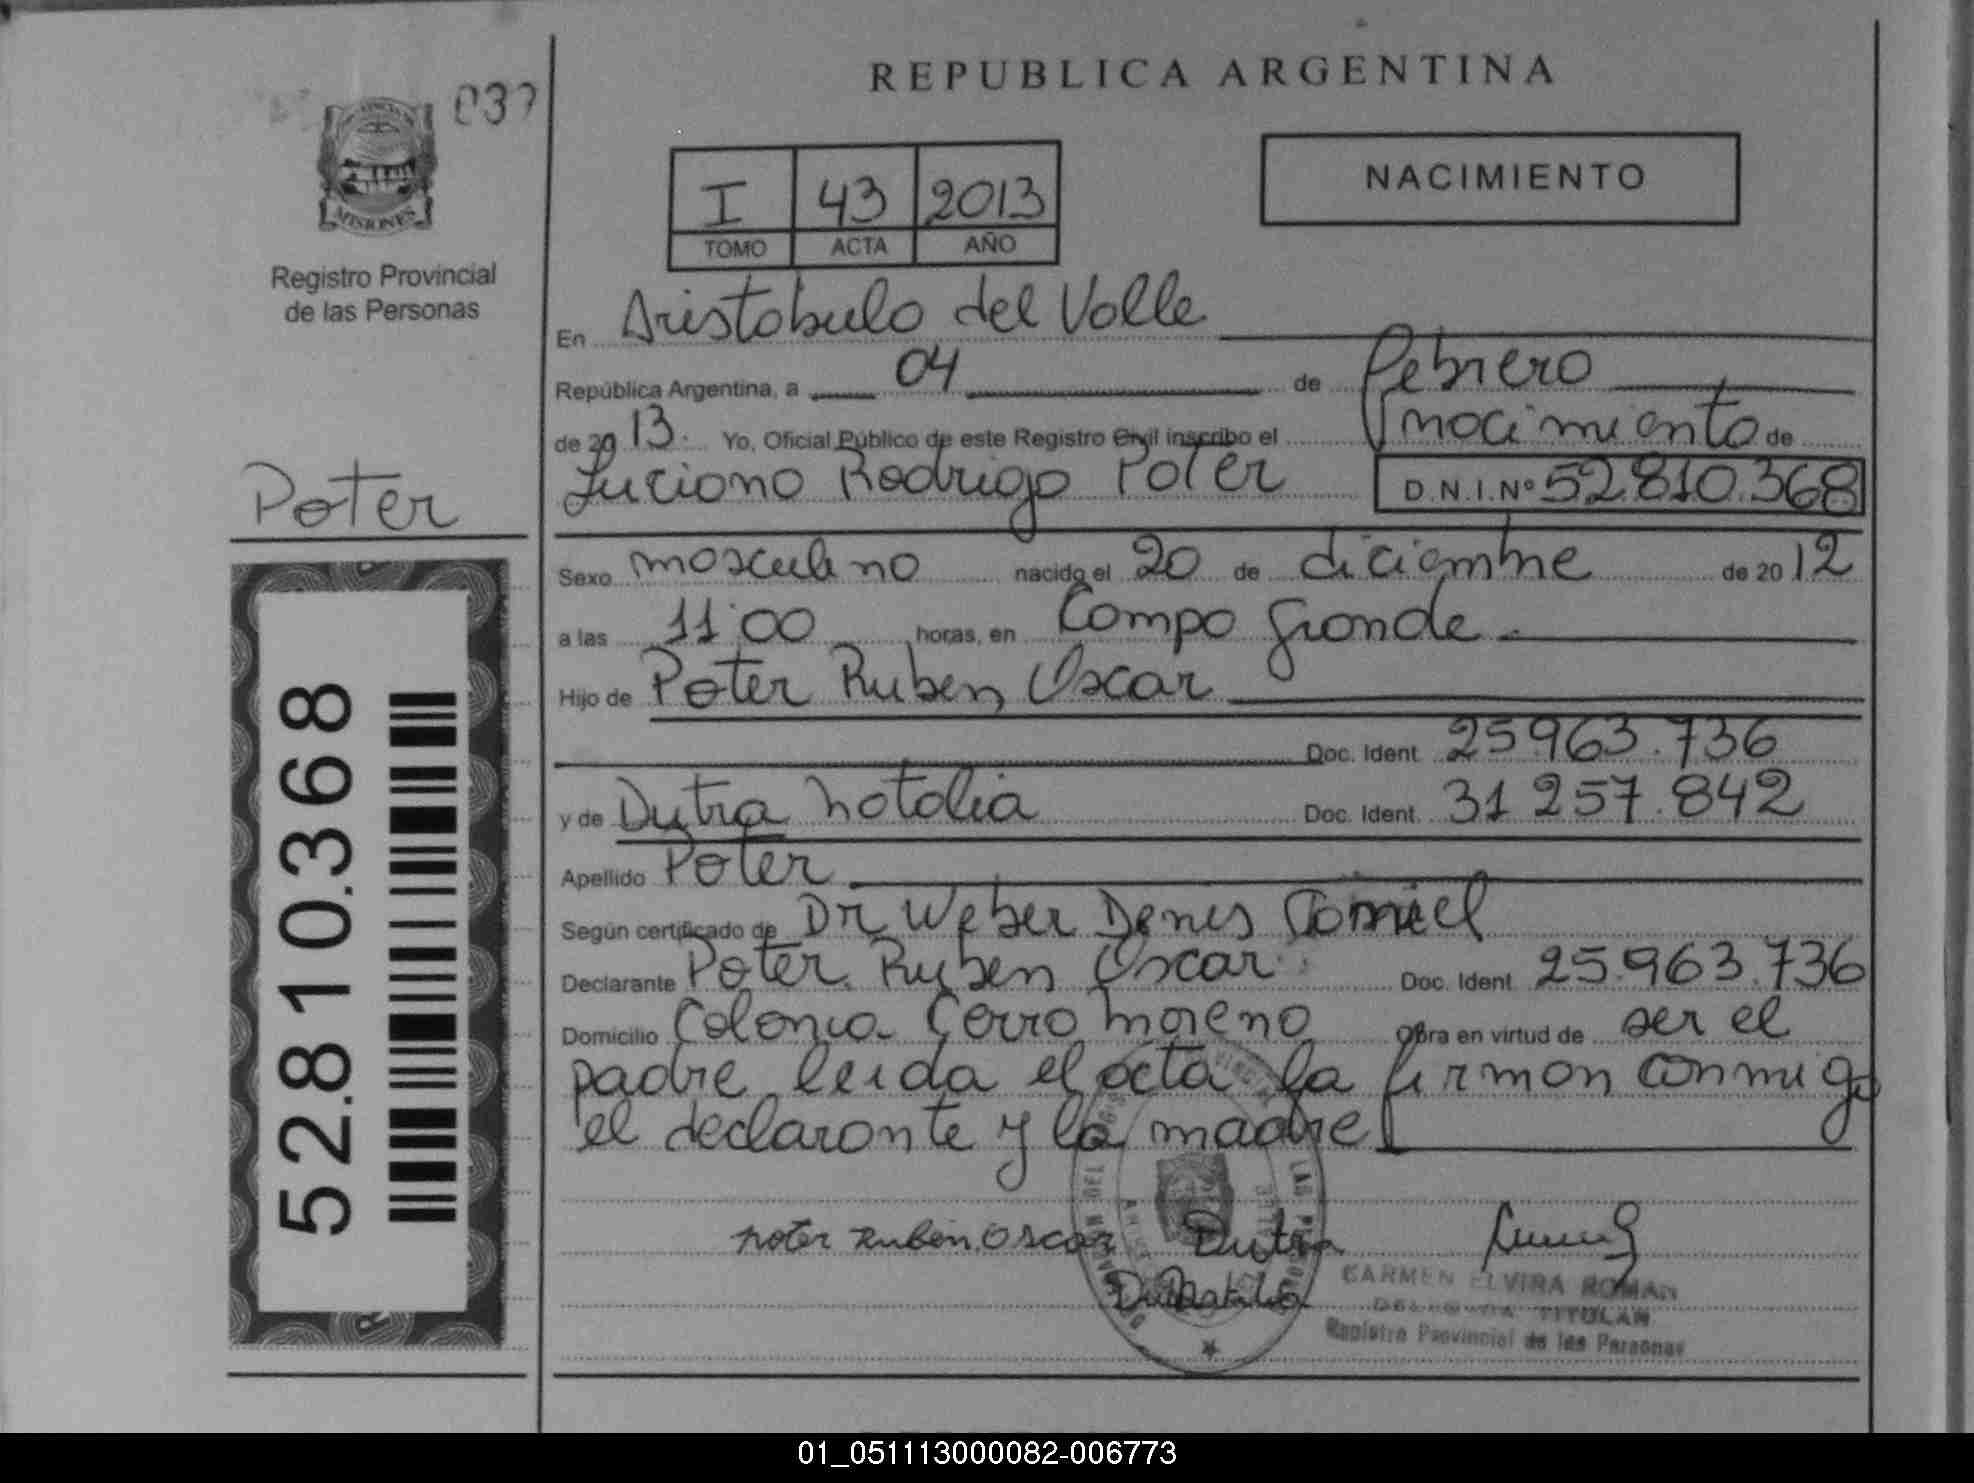 REPUBLICA ARGENTINA
039
MISIONES
Registro Provincial
de las Personas
I 43 2013
TOMO ACTA AÑO
NACIMIENTO
En Aristobulo del Valle
República Argentina, a 04 de Febrero
de 2013. Yo, Oficial Público de este Registro Civil inscribo el nacimiento de
Luciano Rodrigo Poter D.N.I.Nº 52.810.368
Poter
Sexo masculino nacido el 20 de diciembre de 2012
a las 11:00 horas, en Campo Grande.
Hijo de Poter Ruben Oscar
Doc. Ident. 25.963.736
y de Dutra Natalia Doc. Ident. 31.257.842
Apellido Poter
Según certificado de Dr Weber Denis
Declarante Poter Ruben Oscar Doc. Ident. 25.963.736
Domicilio Colonia Cerro Moreno Obra en virtud de ser el
padre leida el acta la firman conmigo
el declarante y la madre
52.810.368
poter Ruben Oscar Dutra
CARMEN ELVIRA ROMAN
DELEGADA TITULAR
Registro Provincial de las Personas
01_051113000082-006773